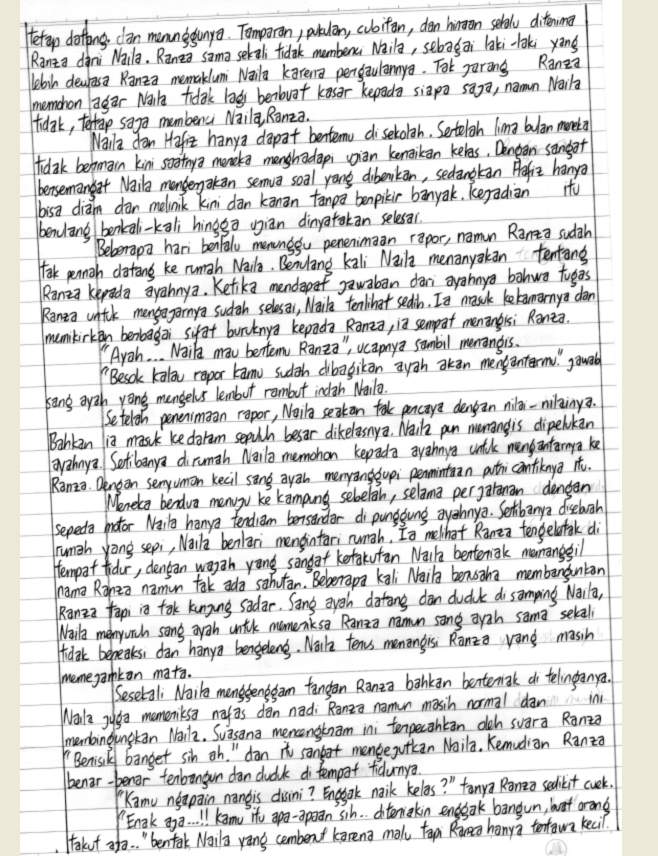 tetap datang dan menunggunya. Tamparan, pukulan, cubitan, dan hinaan selalu diterima
Ranza dari Naila. Ranza sama sekali tidak membenci Naila, sebagai laki-laki yang
lebih dewasa Ranza memaklumi Naila karena pergaulannya. Tak jarang Ranza
memohon agar Naila tidak lagi berbuat kasar kepada siapa saja, namun Naila
tidak, tetap saja membenci Naila, Ranza.
Naila dan Hafiz hanya dapat bertemu di sekolah. Setelah lima bulan mereka
tidak bermain kini saatnya mereka menghadapi ujian kenaikan kelas. Dengan sangat
bersemangat Naila mengerjakan semua soal yang diberikan, sedangkan Hafiz hanya
bisa diam dan melirik kiri dan kanan tanpa berpikir banyak. Kejadian itu
berulang berkali-kali hingga ujian dinyatakan selesai.
Beberapa hari berlalu menunggu penerimaan rapor, namun Ranza sudah
tak pernah datang ke rumah Naila. Berulang kali Naila menanyakan tentang
Ranza kepada ayahnya. Ketika mendapat jawaban dari ayahnya bahwa tugas
Ranza untuk mengajarnya sudah selesai, Naila terlihat sedih. Ia masuk kekamarnya dan
memikirkan berbagai sifat buruknya kepada Ranza, ia sempat menangisi Ranza.
"Ayah... Naila mau bertemu Ranza", ucapnya sambil menangis.
"Besok kalau rapor kamu sudah dibagikan ayah akan mengantarmu." jawab
sang ayah yang mengelus lembut rambut indah Naila.
Setelah penerimaan rapor, Naila seakan tak percaya dengan nilai-nilainya.
Bahkan ia masuk kedalam sepuluh besar dikelasnya. Naila pun menangis dipelukan
ayahnya. Setibanya dirumah Naila memohon kepada ayahnya untuk mengantarnya ke
Ranza. Dengan senyuman kecil sang ayah menyanggupi permintaan putri cantiknya itu.
Mereka berdua menuju ke kampung sebelah, selama perjalanan dengan
sepeda motor Naila hanya terdiam bersandar di punggung ayahnya. Setibanya disebuah
rumah yang sepi, Naila berlari mengintari rumah. Ia melihat Ranza tergeletak di
tempat tidur, dengan wajah yang sangat ketakutan Naila berteriak memanggil
nama Ranza namun tak ada sahutan. Beberapa kali Naila berusaha membangunkan
Ranza tapi ia tak kunjung sadar. Sang ayah datang dan duduk di samping Naila,
Naila menyuruh sang ayah untuk memeriksa Ranza namun sang ayah sama sekali
tidak bereaksi dan hanya bergeleng. Naila terus menangisi Ranza yang masih
memejamkan mata.
Sesekali Naila menggenggam tangan Ranza bahkan berteriak di telinganya.
Naila juga memeriksa nafas dan nadi Ranza namun masih normal dan ini
membingungkan Naila. Suasana mencengkram ini terpecahkan oleh suara Ranza
"Berisik banget sih ah." dan itu sangat mengejutkan Naila. Kemudian Ranza
benar-benar terbangun dan duduk di tempat tidurnya.
"Kamu ngapain nangis disini? Enggak naik kelas?" tanya Ranza sedikit cuek.
"Enak aja...!! kamu itu apa-apaan sih.. diteriakin enggak bangun, buat orang
takut aja.." bentak Naila yang cemberut karena malu tapi Ranza hanya tertawa kecil.